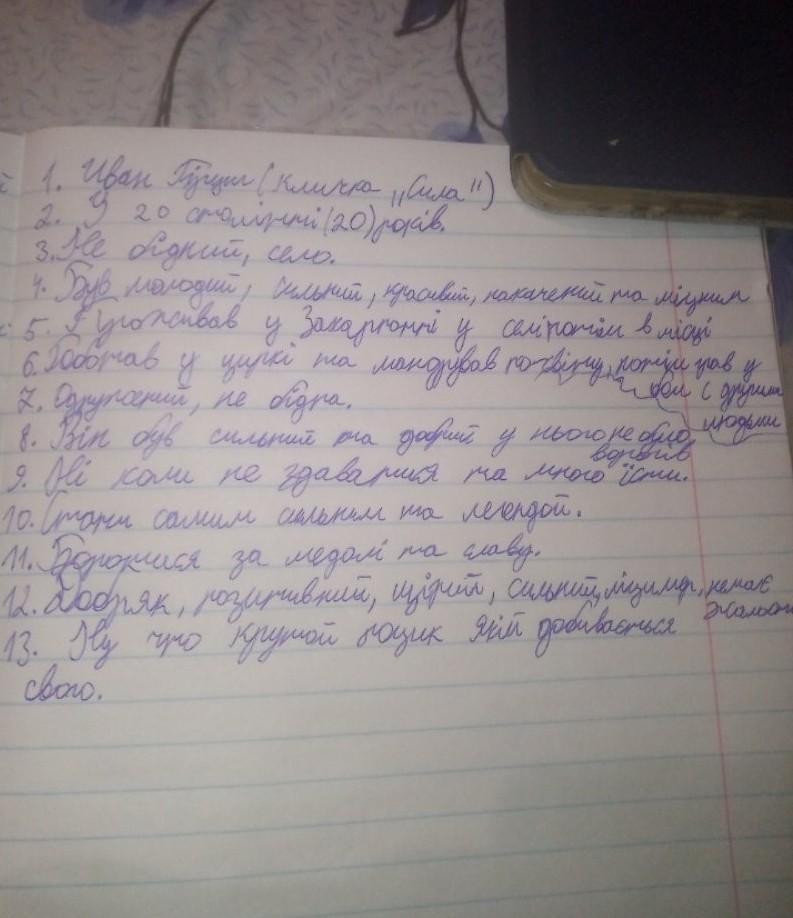 1. Иван (кличка „Сила")
2. У 20 столітті (20) років.
3. Не бідний, село.
4. Був молодий, сильний, красивий, накачений та міцним
5. Проживав у Закарпатті у селі потім в місці
6. Работав у циркі та мандрував по світу, потім грав у
бої с другими
людьми
7. Одружений, не бідна.
8. Він був сильний та добрий у нього не було
ворогів
9. Ні коли не здаватися та много їсти.
10. Стати самим сильнім та легендой.
11. Боротися за медалі та славу.
12. Добряк, позитивний, щірий, сильний, немає
13. Ну про крутой який добивається
свого.